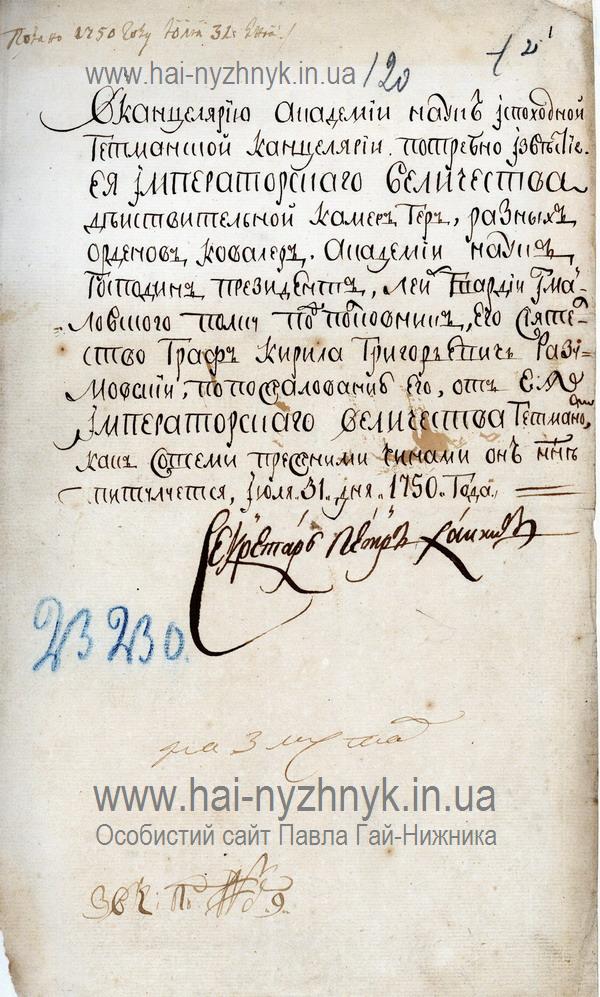 Подано 1750 году Июля 31 дня
www.hai-nyzhnyk.in.ua
120
Вканцелярию Академіи наукъ іспоходной
Гетманской канцеляріи. потребно ізвѣстіе.
ЕЯ ІМПЕРАТОРСКАГО ВЕЛИЧЕСТВА
дѣиствительной камеръ геръ, разныхъ
орденовъ ковалеръ. Академіи наукъ
Господинъ президентъ, лейбъ гвардіи Ізма-
ловского полку подполковникъ, его сіятел-
ство Графъ Кирила Григорьевичъ Разу-
мовскии, попожалованиѣ его, отъ ЕЯ
ІМПЕРАТОРСКАГО ВЕЛИЧЕСТВА Гетманом,
какъ совсеми прежними чинами онъ ннѣ
титулуется, Іюля. 31. дня. 1750. Года.
Секретарь Петръ Ханинъ
www.hai-nyzhnyk.in.ua
Особистий сайт Павла Гай-Нижника